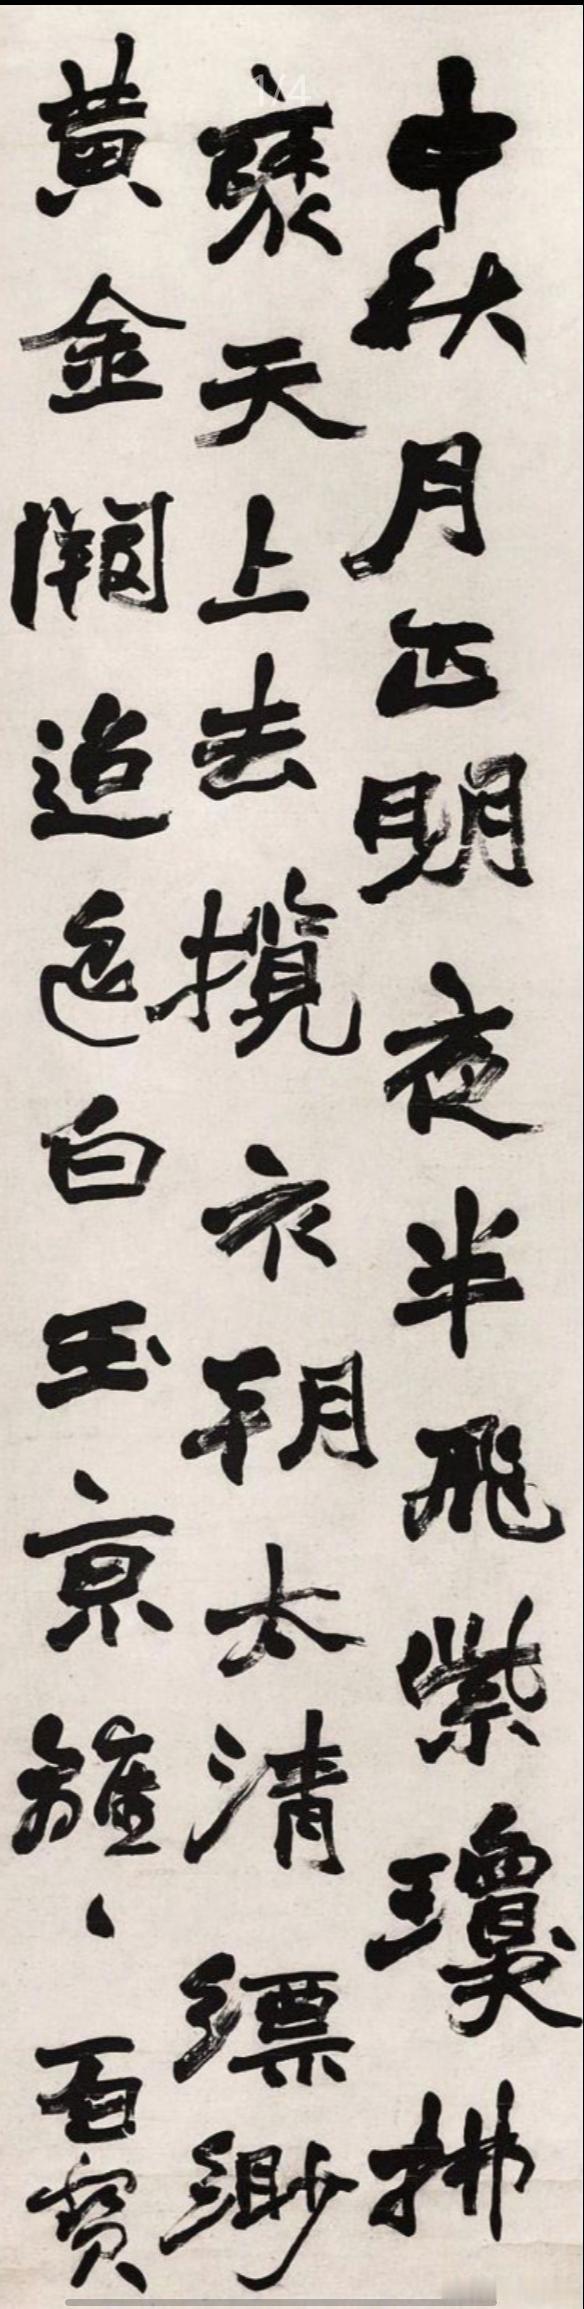 1/4
中秋月正明夜半飛紫瓊拂
褎天上去攬衣朝太清縹緲
黃金闕迢白玉京離、百寶